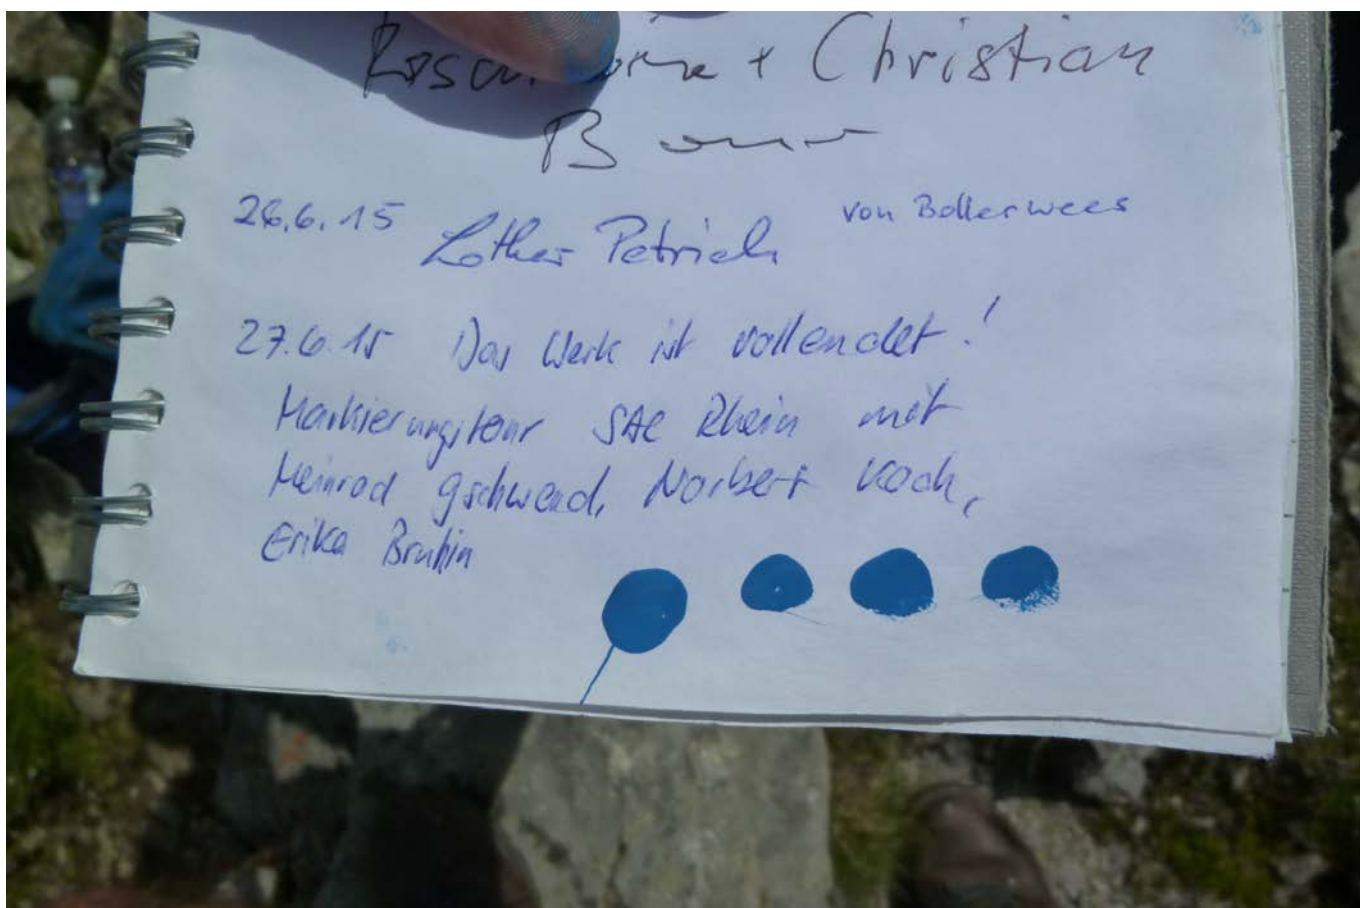 + Christian
26.6.15 Lothar Petrich von Bollenwees
27.6.15 Das Werk ist vollendet!
Markierungstour SAC Rhein mit
Meinrad Gschwend, Norbert Koch,
Erika Bruhin